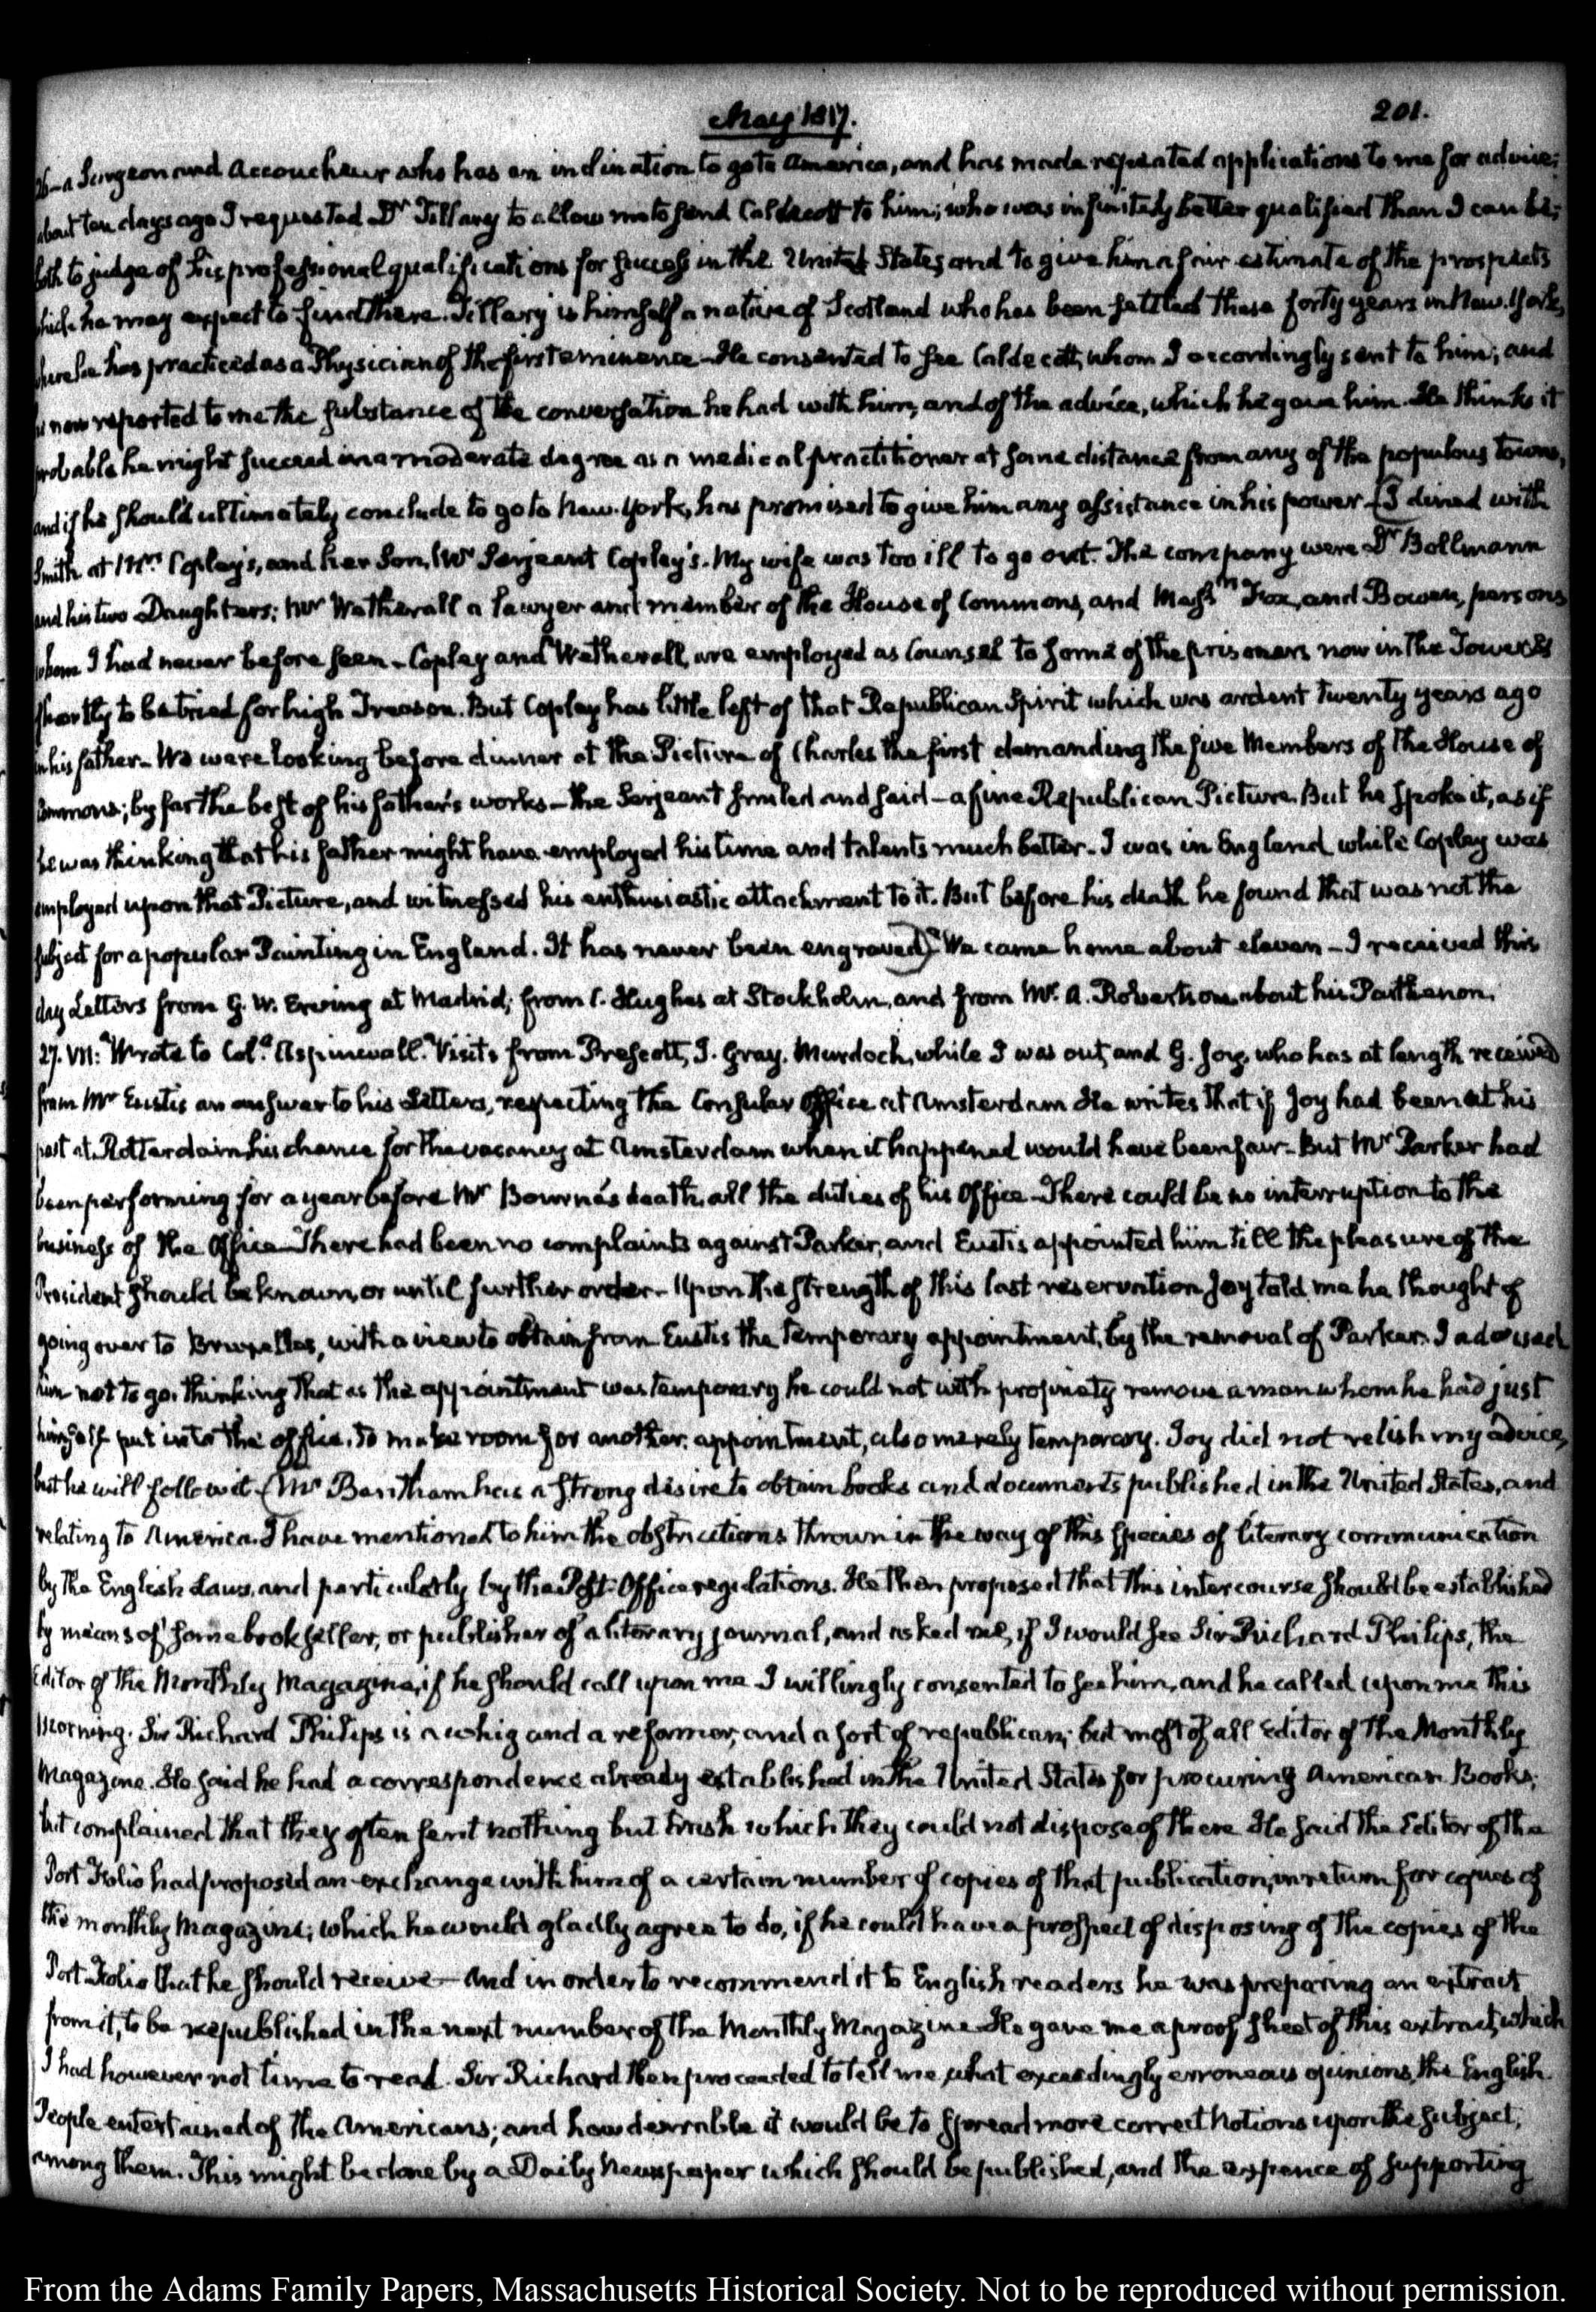 May 1817.
201.
26 - a Surgeon and Accoucheur who has an inclination to go to America, and has made repeated applications to me for advice;
about ten days ago I requested Dr Tillary to allow me to send Caldecott to him; who was infinitely better qualified than I can be;
both to judge of his professional qualifications for success in the United States, and to give him a fair estimate of the prospects
which he may expect to find there. Tillary is himself a native of Scotland who has been settled these forty years in New-York,
where he has practiced as a Physician of the first eminence - He consented to see Caldecott, whom I accordingly sent to him; and
he now reported to me the substance of the conversation he had with him, and of the advice, which he gave him. He thinks it
probable he might succeed in a moderate degree as a medical practitioner at some distance from any of the populous towns,
and if he should ultimately conclude to go to New-York, has promised to give him any assistance in his power - (I dined with
Smith at Mrs Copley's, and her Son, Mr Serjeant Copley's. My wife was too ill to go out. The company were Dr Bollmann
and his two Daughters; Mr Wetherall a lawyer and member of the House of Commons, and Messrs Fox, and Bowen, persons
whom I had never before seen - Copley and Wetherall, are employed as Counsel to some of the prisoners now in the Tower &
shortly to be tried for high Treason. But Copley has little left of that Republican Spirit which was ardent twenty years ago
in his father - We were looking before dinner at the Picture of Charles the first demanding the five Members of the House of
Commons; by far the best of his father's works - the Serjeant smiled and said - a fine Republican Picture. But he spoke it, as if
he was thinking that his father might have employed his time and talents much better - I was in England while Copley was
employed upon that Picture, and witnessed his enthusiastic attachment to it. But before his death he found that was not the
subject for a popular Painting in England. It has never been engraved) We came home about eleven - I received this
day Letters from G. W. Erving at Madrid; from C. Hughes at Stockholm, and from Mr. A. Robertson about his Parthenon.
27. VII: Wrote to Coll. Aspinwall. Visits from Prescott, J. Gray. Murdoch, while I was out, and G. Joy, who has at length received
from Mr Eustis an answer to his Letters, respecting the Consular Office at Amsterdam He writes that if Joy had been at his
post at Rotterdam his chance for the vacancy at Amsterdam when it happened would have been fair - But Mr Parker had
been performing for a year before Mr Bourne's death, all the duties of his Office - There could be no interruption to the
business of the Office - There had been no complaints against Parker, and Eustis appointed him till the pleasure of the
President should be known, or until further order - Upon the strength of this last reservation Joy told me he thought of
going over to Bruxelles, with a view to obtain from Eustis the temporary appointment, by the removal of Parker. I advised
him not to go. thinking that as the appointment was temporary he could not with propriety remove a man whom he had just
himself put into the office, to make room for another appointment, also merely temporary. Joy did not relish my advice,
but he will follow it - (Mr Bentham has a strong desire to obtain books and documents published in the United States, and
relating to America. I have mentioned to him the obstructions thrown in the way of this species of literary communication
by the English Laws, and particularly by the Post-Office regulations. He then proposed that this intercourse should be established
by means of some bookseller, or publisher of a literary journal, and asked me, if I would see Sir Richard Philips, the
Editor of the Monthly Magazine, if he should call upon me I willingly consented to see him, and he called upon me this
Morning. Sir Richard Philips is a whig and a reformer, and a sort of republican; but most of all Editor of the Monthly
Magazine. He said he had a correspondence already established in the United States for procuring American Books;
but complained that they often sent nothing but trash which they could not dispose of there He said the Editor of the
Port Folio had proposed an exchange with him of a certain number of copies of that publication, in return for copies of
the monthly Magazine; which he would gladly agree to do, if he could have a prospect of disposing of the copies of the
Port-Folio that he should receive - and in order to recommend it to English readers he was preparing an extract
from it, to be republished in the next number of the Monthly Magazine He gave me a proof sheet of this extract, which
I had however not time to read. Sir Richard then proceeded to tell me, what exceedingly erroneous opinions, the English
People entertained of the Americans; and how desirable it would be to spread more correct notions upon the subject,
among them. This might be done by a Daily Newspaper which should be published, and the expence of supporting
From the Adams Family Papers, Massachusetts Historical Society. Not to be reproduced without permission.